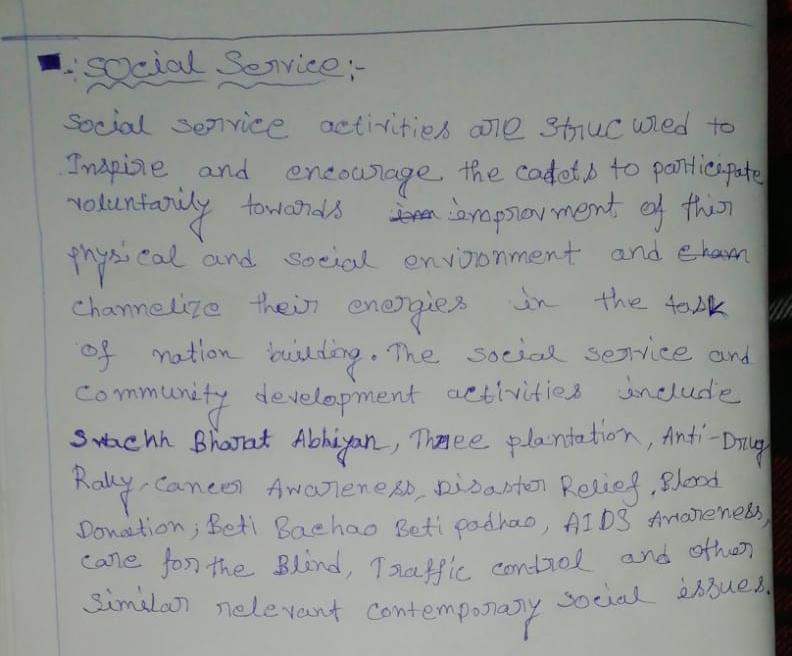 : Social Service:-
Social service activities are strucured to
Inspire and encourage the cadets to participate
voluntarily towards improvment of thir
physical and social environment and
channelize their energies in the task
of nation building. The social service and
community development activities include
Swachh Bharat Abhiyan, Three plantation, Anti-Drug
Rally, Cancer Awareness, Disaster Relief, Blood
Donation; Beti Bachao Beti padhao, AIDS Awareness,
care for the Blind, Traffic control and other
similar relevant contemporary social issues.